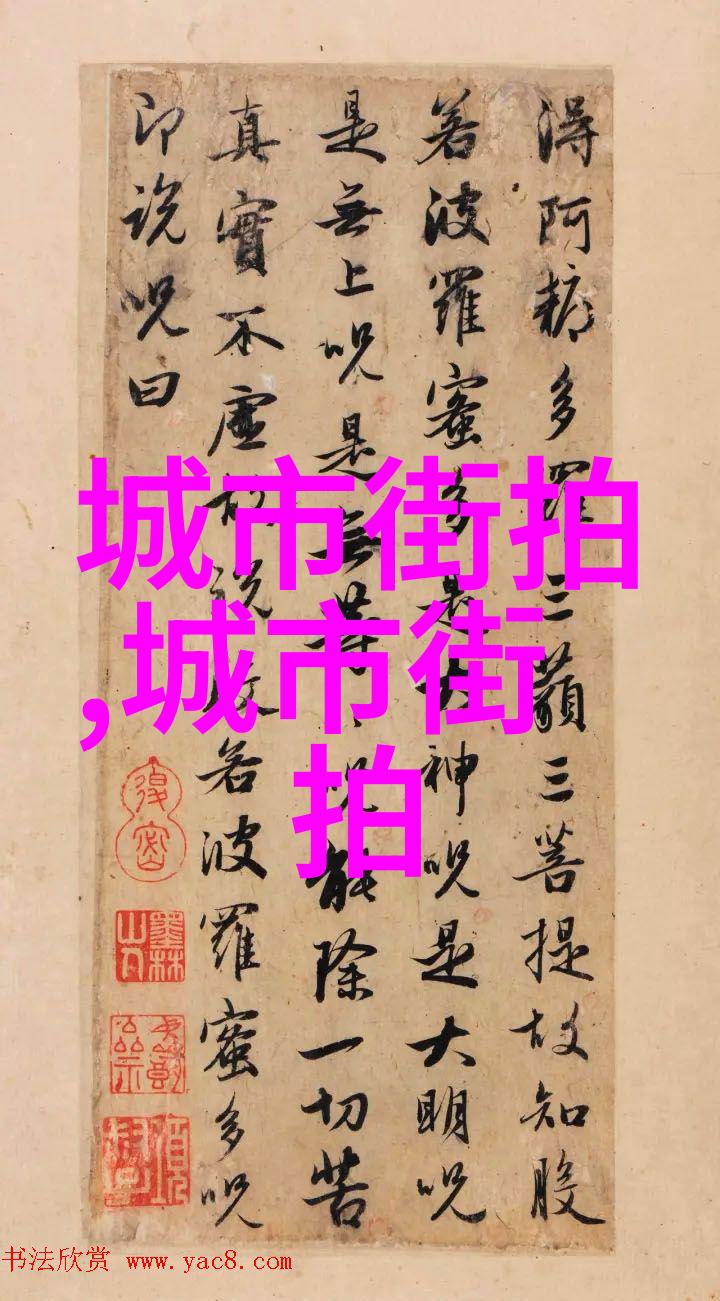 得阿耨多羅三藐三菩提故知般
若波羅蜜多是大神呪是大明呪
是無上呪是無等等呪能除一切苦
真實不虛故說般若波羅蜜多呪
即說呪曰
城市街拍
,城市街
拍
墨林山人
书法欣赏 www.yac8.com